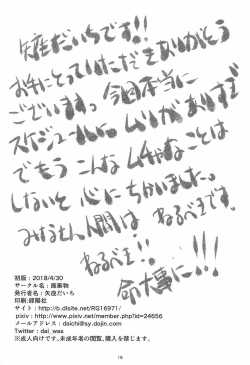 矢座だいちです!!
お手にとっていただきありがとう
ございますっ 今回本当に
スケジュールに。ムリがありすぎ
でもう こんな ムチャなことは
しないと 心に ちかいました。
みなさん 人間は ねるべきです。
ねるべき!!
命大事に!!!
初版:2018/4/30
サークル名:
発行者名:矢座だいち
印刷:
サイト:http://b.dlsite.net/RG16971/
pixiv:http://pixiv.net/member.php?id=24656
メールアドレス:daichi@sy.dojin.com
Twitter:dai_wxs
※成人向けです。未成年者の閲覧、購入を禁じます。